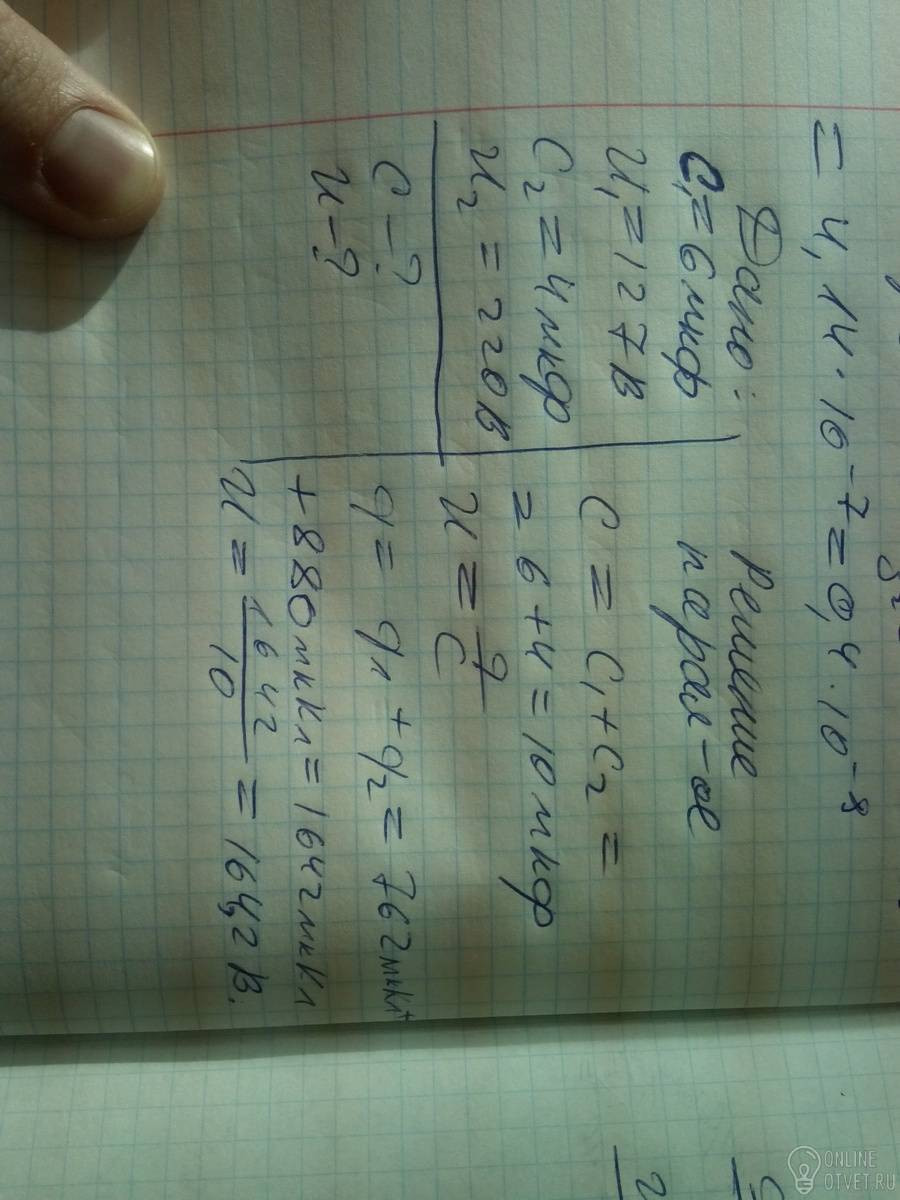 = 4,14·10⁻⁷ = 0,4·10⁻⁸
Дано:
C₁ = 6 мкф
U₁ = 127 В
C₂ = 4 мкф
U₂ = 220 В
C – ?
U – ?
Решение
парал-ое
C = C₁ + C₂ =
= 6 + 4 = 10 мкф
U = q/C
q = q₁ + q₂ = 762 мкКл +
+ 880 мкКл = 1642 мкКл
U = 1642/10 = 164,2 В.
ONLINE
OTVET.RU